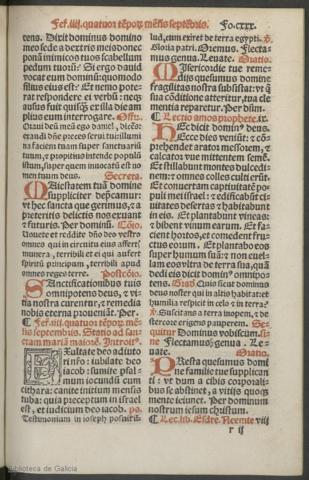 Fer.iiij.quatuor tẽporũ mẽsis septẽbris. Fo.cxxx.
tens. Dixit dominus domino
meo sede a dextris meis donec
ponã inimicos tuos scabellum
pedum tuorũ? Si ergo dauid
vocat eum dominũ: quomodo
filius eius est? Et nemo pote-
rat respondere ei verbũ: neqʒ
ausus fuit quisq̃ ex illa die am
plius eum interrogare. Offm.
Oraui deũ meũ ego daniel, dicẽs:
exaudi dñe preces serui tui: illumi
na faciem tuam super sanctuariũ
tuum, et propitius intende populũ
istum, super quem inuocatũ est no
men tuum deus. Secreta.
Maiestatem tuã domine
suppliciter depcamur:
vt hec sancta que gerimus, et a
preteritis delictis nos exuant
et futuris. Per dominũ. Cõio.
Uouete et reddite dño deo vestro
omnes qui in circuitu eius affertis
munera, terribili et ei qui aufert
spiritũ principum, terribili apud
omnes reges terre. Postcõio.
Sanctificationibus tuis
omnipotens deus, et vi
tia nostra curentur, et remedia
nobis eterna proueniãt. Per.
Fer.iiij.quatuor tẽporũ mẽ
sis septembris. Statio ad san
ctam mariã maiorẽ. Introitus.
Exultate deo adiuto
ri nr̃o: iubilate deo
iacob: sumite psal-
mum iocundũ cum
cithara: canite initium mensis
tuba: quia preceptum in israel
est, et iudicium deo iacob. ps.
Testimonium in ioseph posuit
lud, cum exiret de terra egypti. ℣.
Gloria patri. Oremus. Flecta-
mus genua. Leuate. Oratio.
Misericordie tue reme-
dijs quesumus domine
fragilitas nostra subsistat: vt q̃
sua cõditione atteritur, tua cle
mentia reparetur. Per dñm.
Lectio amos prophete. ix
Hec dicit domin⁹ deus.
Ecce dies veniũt: et cõ-
prehendet arator messorem, et
calcator vue mittentem semẽ.
Et stillabunt montes dulcedi-
nem: et omnes colles culti erũt.
Et conuertam captiuitatẽ po-
puli mei israel: et edificabũt ci-
uitates desertas et habitabunt
in eis. Et plantabunt vineas:
et bibent vinum earum. Et fa-
cient hortos, et comedent fru-
ctus eorum. Et plantabo eos
super humum suã: et non euel-
lam eos vltra de terra sua, quã
dedi eis dicit domin⁹ omnipo
tens. Grad. Quis sicut dominus
deus noster qui in altis habitat et
humilia respicit in celo et in terra?
℣. Suscitans a terra inopem, et de
stercore erigens pauperem.
Dominus vobiscum.
Flectamus genua.
Leuate. Oratio.
Presta quesumus domi
ne familie tue supplican
ti: vt dum a cibis corporali-
bus se abstinet, a vitijs quoqʒ
mente ieiunet. Per dominum
nostrum iesum christum.
Lec. lib. Esdre. Neemie viij
r ij
Biblioteca de Galicia